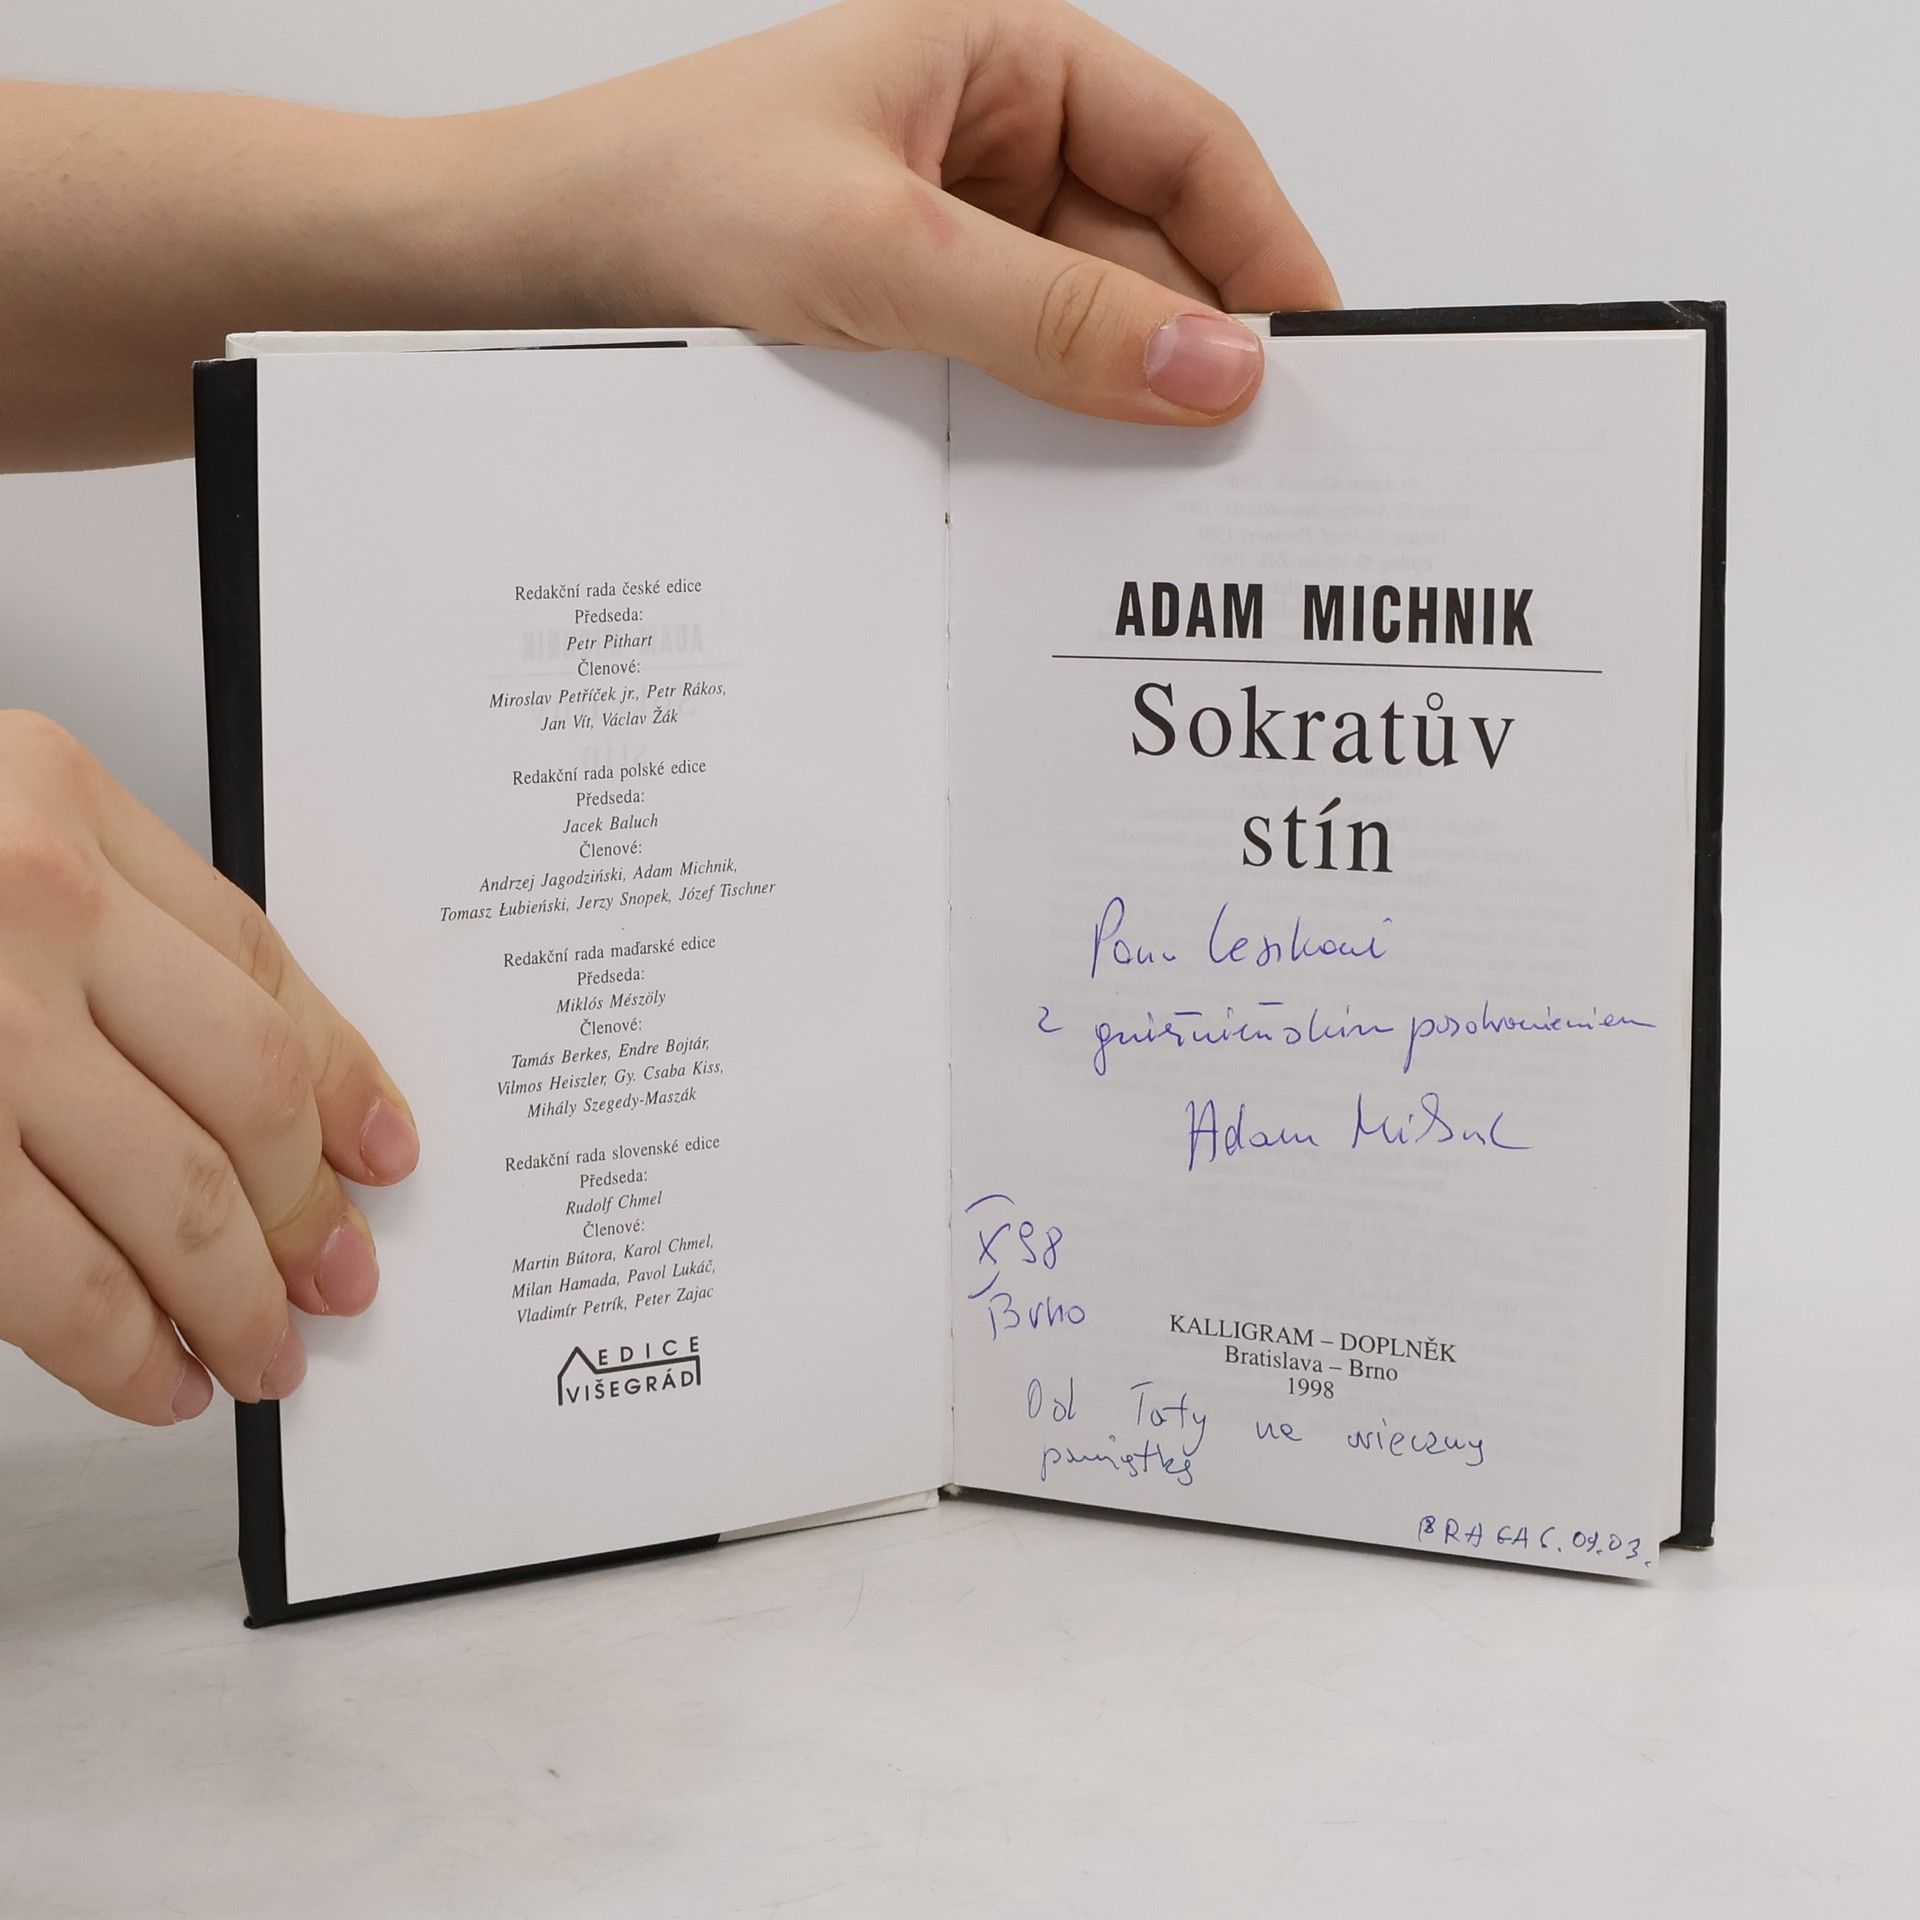 Redakční rada české edice
Předseda:
Petr Pithart
Členové:
Miroslav Petříček jr., Petr Rákos,
Jan Vít, Václav Žák
Redakční rada polské edice
Předseda:
Jacek Baluch
Členové:
Andrzej Jagodziński, Adam Michnik,
Tomasz Łubieński, Jerzy Snopek, Józef Tischner
Redakční rada maďarské edice
Předseda:
Miklós Mészöly
Členové:
Tamás Berkes, Endre Bojtár,
Vilmos Heiszler, Gy. Csaba Kiss,
Mihály Szegedy-Maszák
Redakční rada slovenské edice
Předseda:
Rudolf Chmel
Členové:
Martin Bútora, Karol Chmel,
Milan Hamada, Pavol Lukáč,
Vladimír Petrík, Peter Zajac
EDICE
VIŠEGRÁD
ADAM MICHNIK
Sokratův
stín
Panu
z
Adam Michnik
X 98
Brno
KALLIGRAM – DOPLNĚK
Bratislava – Brno
1998
Od Taty na wieczny
pamiątkę
09.03.